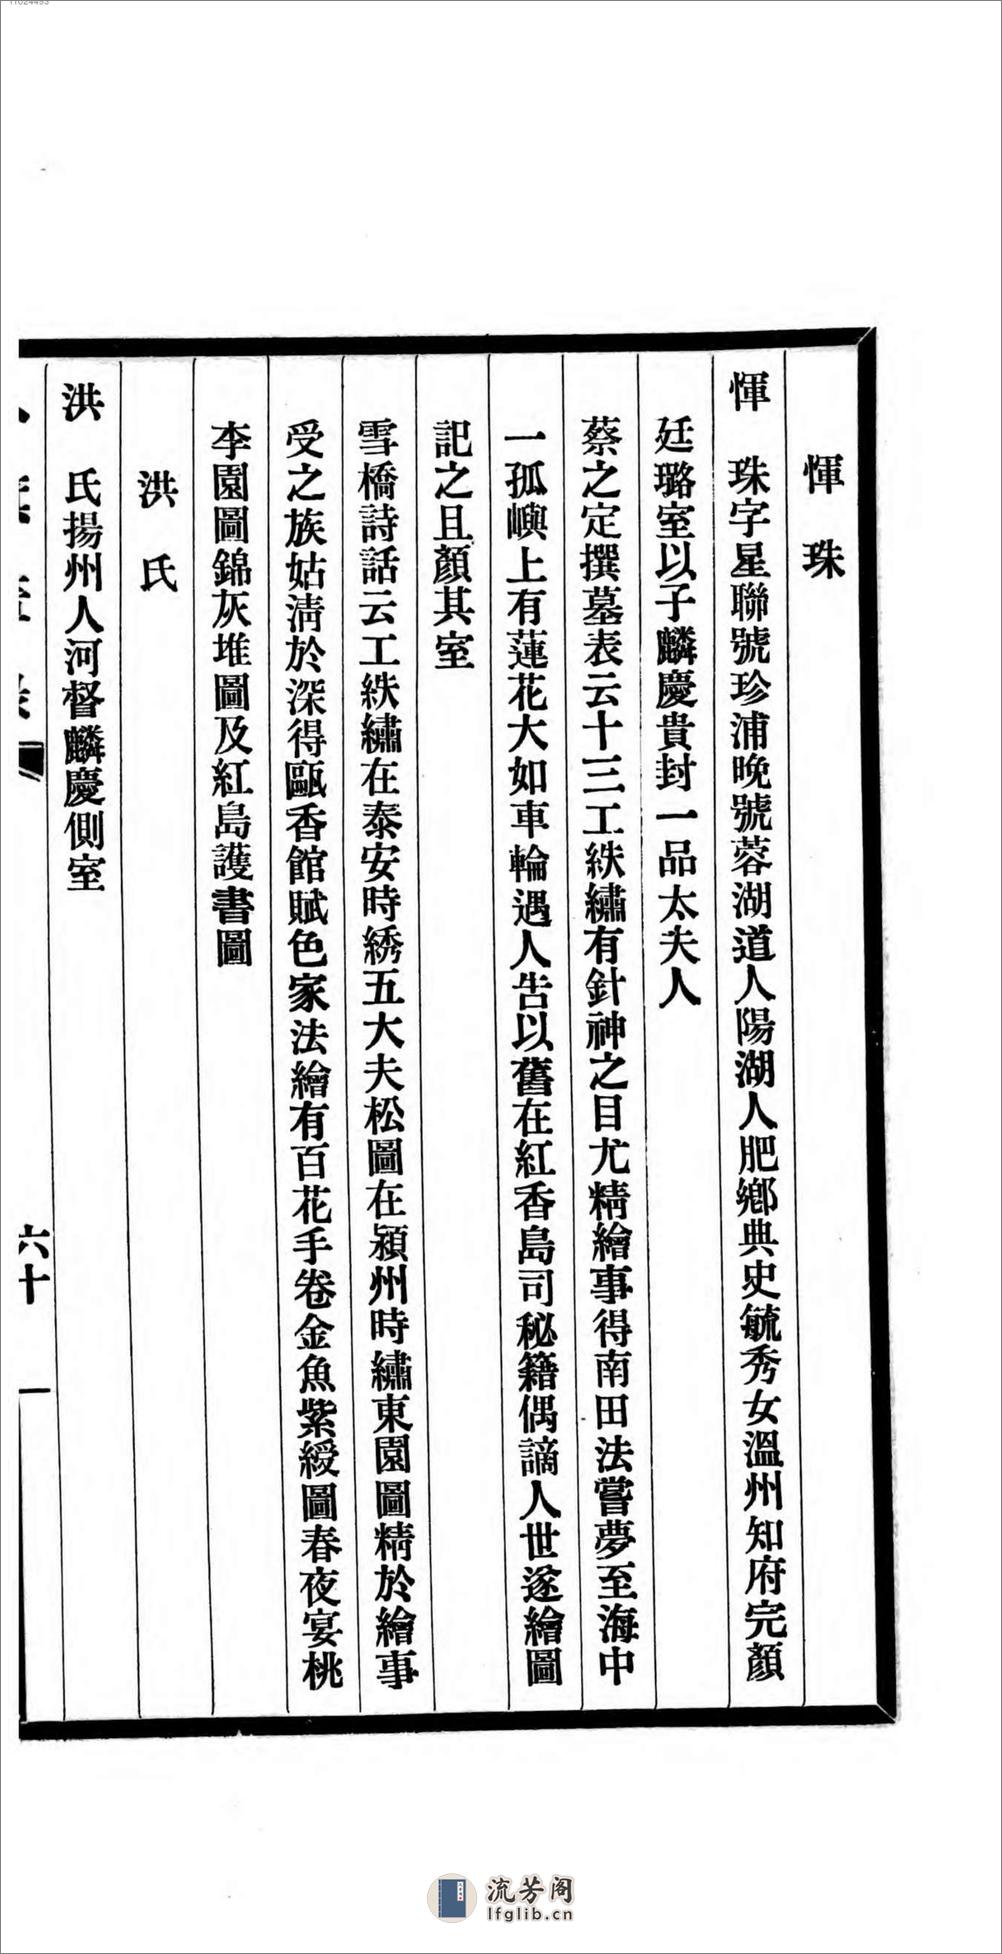 惲珠
惲　珠字星聯號珍浦晚號蓉湖道人陽湖人肥鄉典史毓秀女溫州知府完顏
廷璐室以子麟慶貴封一品太夫人
蔡之定撰墓表云十三工紩繡有針神之目尤精繪事得南田法嘗夢至海中
一孤嶼上有蓮花大如車輪遇人告以舊在紅香島司秘籍偶謫人世遂繪圖
記之且顏其室
雪橋詩話云工紩繡在泰安時綉五大夫松圖在潁州時繡東園圖精於繪事
受之族姑淸於深得甌香館賦色家法繪有百花手卷金魚紫綬圖春夜宴桃
李園圖錦灰堆圖及紅島護書圖
洪氏
洪　氏揚州人河督麟慶側室
六十一
流芳阁
lfglib.cn